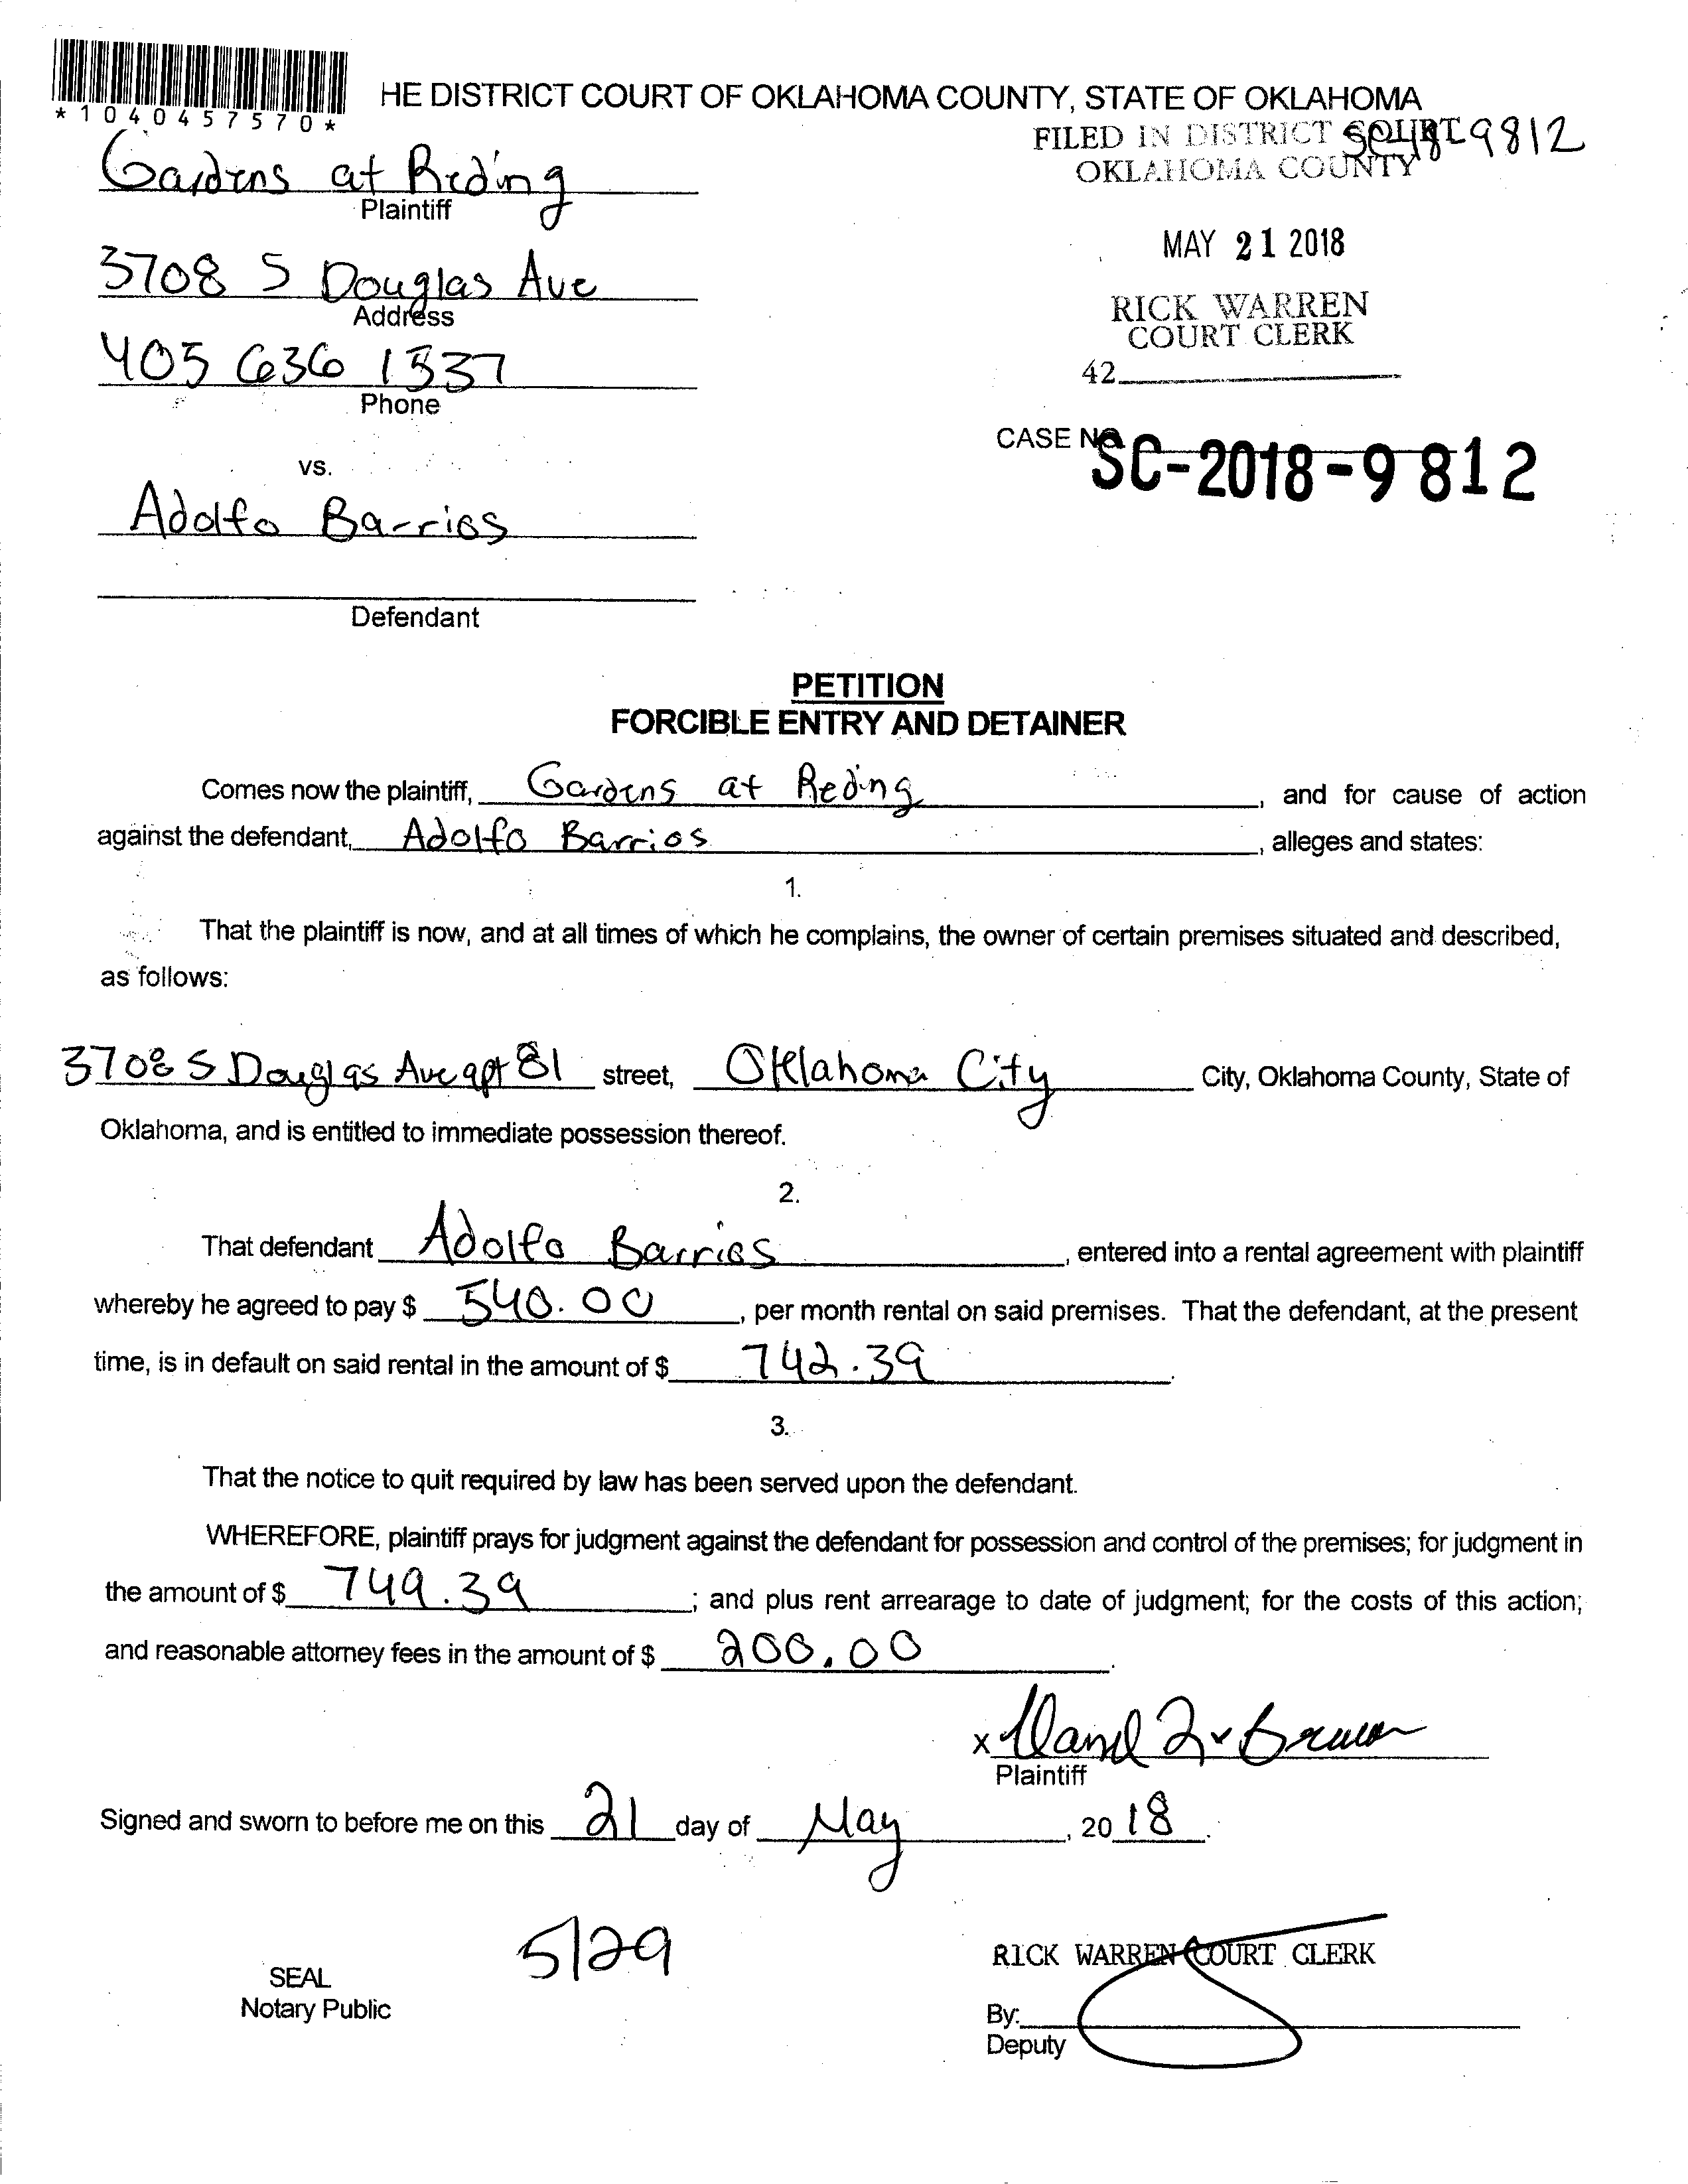 *1040457570*
HE DISTRICT COURT OF OKLAHOMA COUNTY, STATE OF OKLAHOMA
FILED IN DISTRICT COURT
SC189812
OKLAHOMA COUNTY
Gardens at Reding
Plaintiff
MAY 21 2018
3708 S Douglas Ave
Address
RICK WARREN
COURT CLERK
405 636 1337
Phone
42
CASE NO.
SC-2018-9812
vs.
Adolfo Barrios
Defendant
PETITION
FORCIBLE ENTRY AND DETAINER
Comes now the plaintiff, Gardens at Reding, and for cause of action
against the defendant, Adolfo Barrios, alleges and states:
1.
That the plaintiff is now, and at all times of which he complains, the owner of certain premises situated and described,
as follows:
3708 S Douglas Ave apt 81 street, Oklahoma City City, Oklahoma County, State of
Oklahoma, and is entitled to immediate possession thereof.
2.
That defendant Adolfo Barrios, entered into a rental agreement with plaintiff
whereby he agreed to pay $ 540.00, per month rental on said premises. That the defendant, at the present
time, is in default on said rental in the amount of $ 742.39.
3.
That the notice to quit required by law has been served upon the defendant.
WHEREFORE, plaintiff prays for judgment against the defendant for possession and control of the premises; for judgment in
the amount of $ 749.39; and plus rent arrearage to date of judgment; for the costs of this action;
and reasonable attorney fees in the amount of $ 200.00.
x
Plaintiff
Signed and sworn to before me on this 21 day of May, 2018.
5/29
RICK WARREN COURT CLERK
SEAL
Notary Public
By:
Deputy